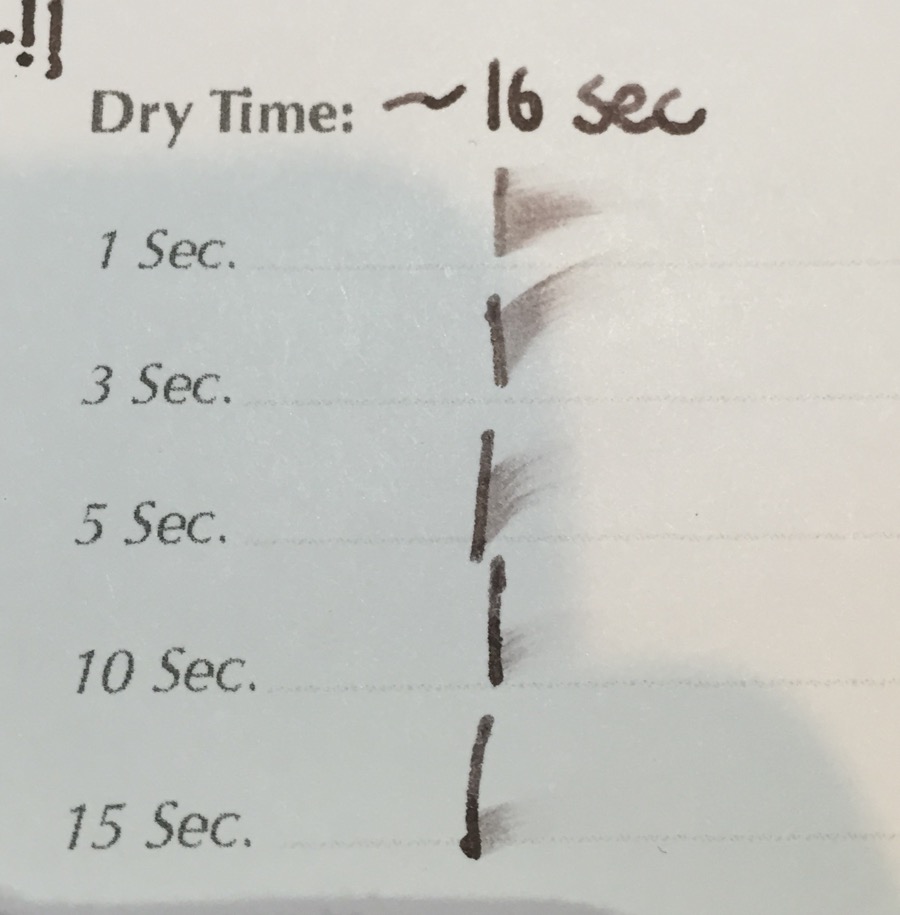 Dry Time: ~16 sec
1 Sec.
3 Sec.
5 Sec.
10 Sec.
15 Sec.